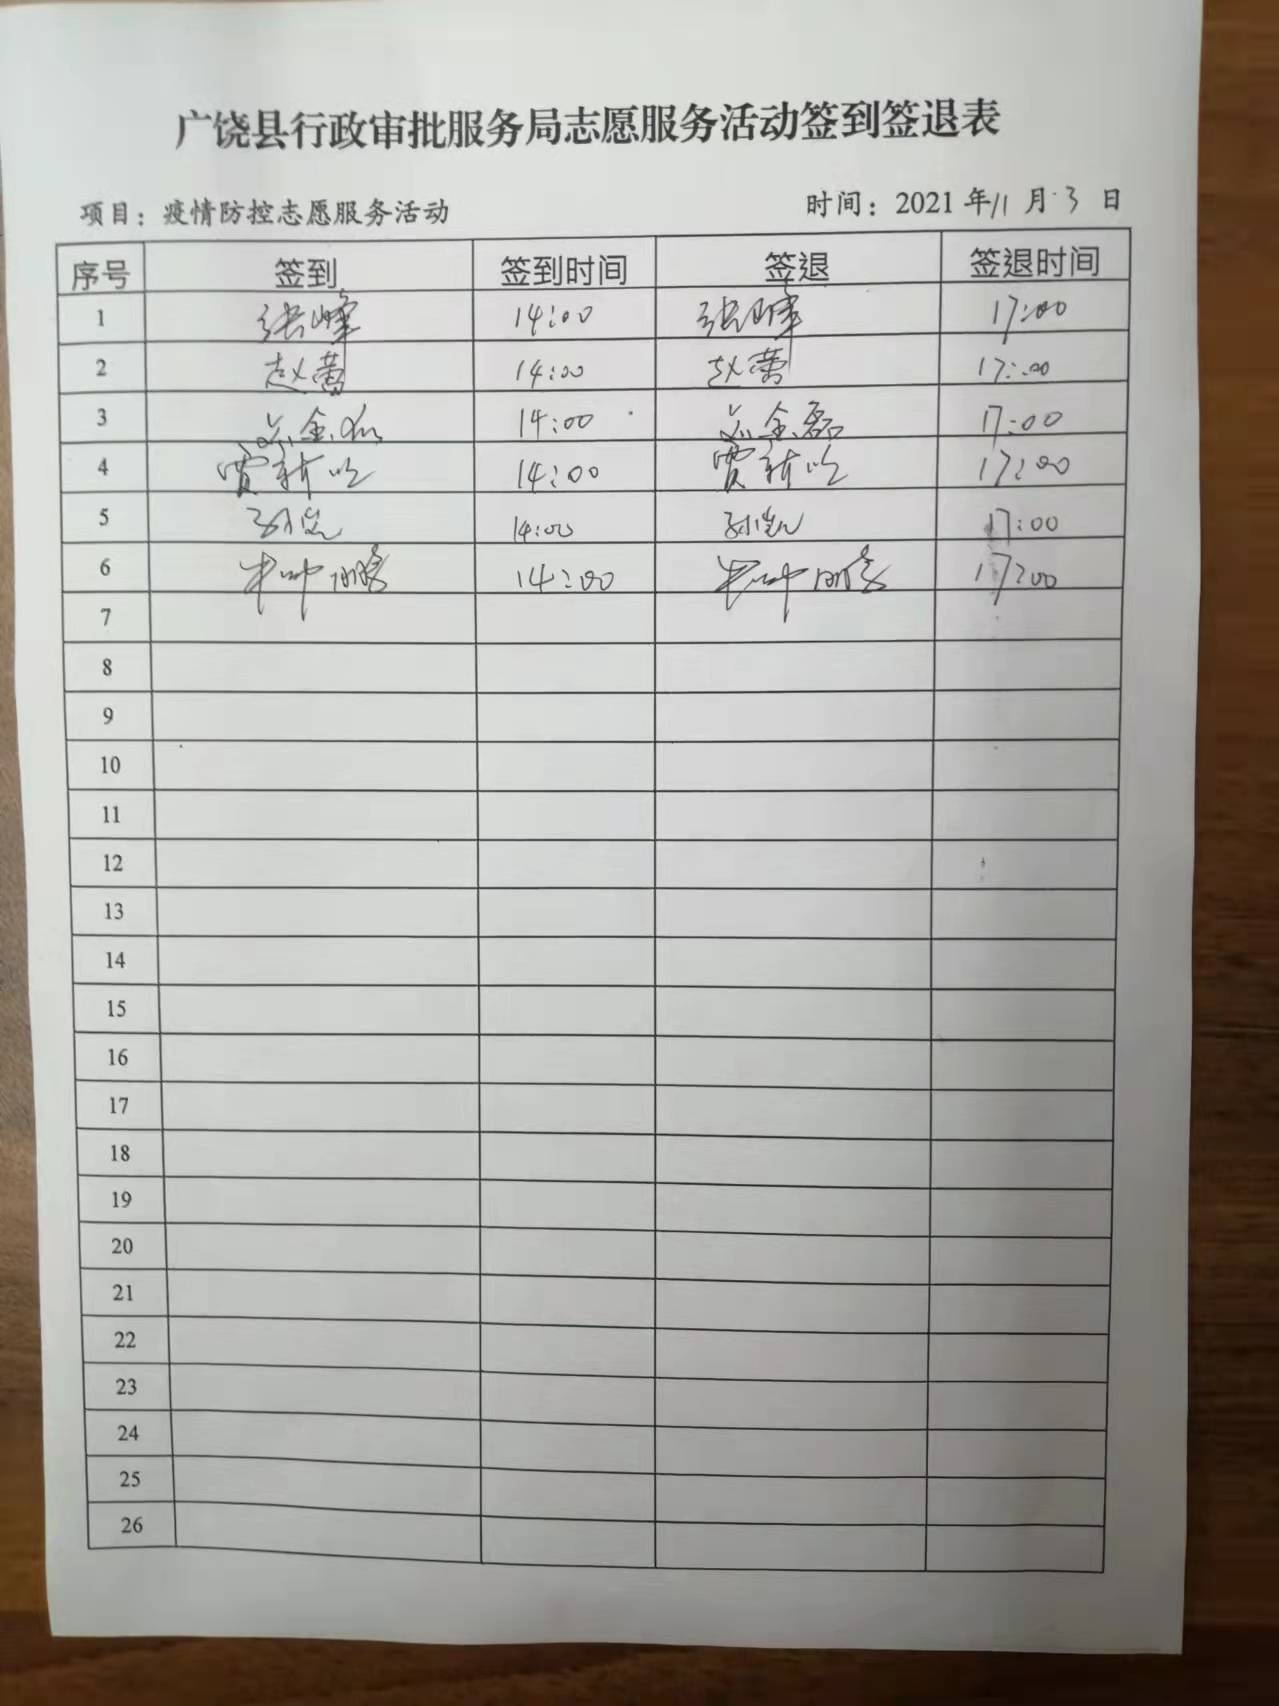 广饶县行政审批服务局志愿服务活动签到签退表
项目：疫情防控志愿服务活动 时间：2021年11月3日
序号 签到 签到时间 签退 签退时间
1 张峰 14:00 张峰 17:00
2 赵蕾 14:00 赵蕾 17:00
3 14:00 金磊 17:00
4 贾新 14:00 贾新 17:00
5 14:00 17:00
6 14:00 17:00
7
8
9
10
11
12
13
14
15
16
17
18
19
20
21
22
23
24
25
26